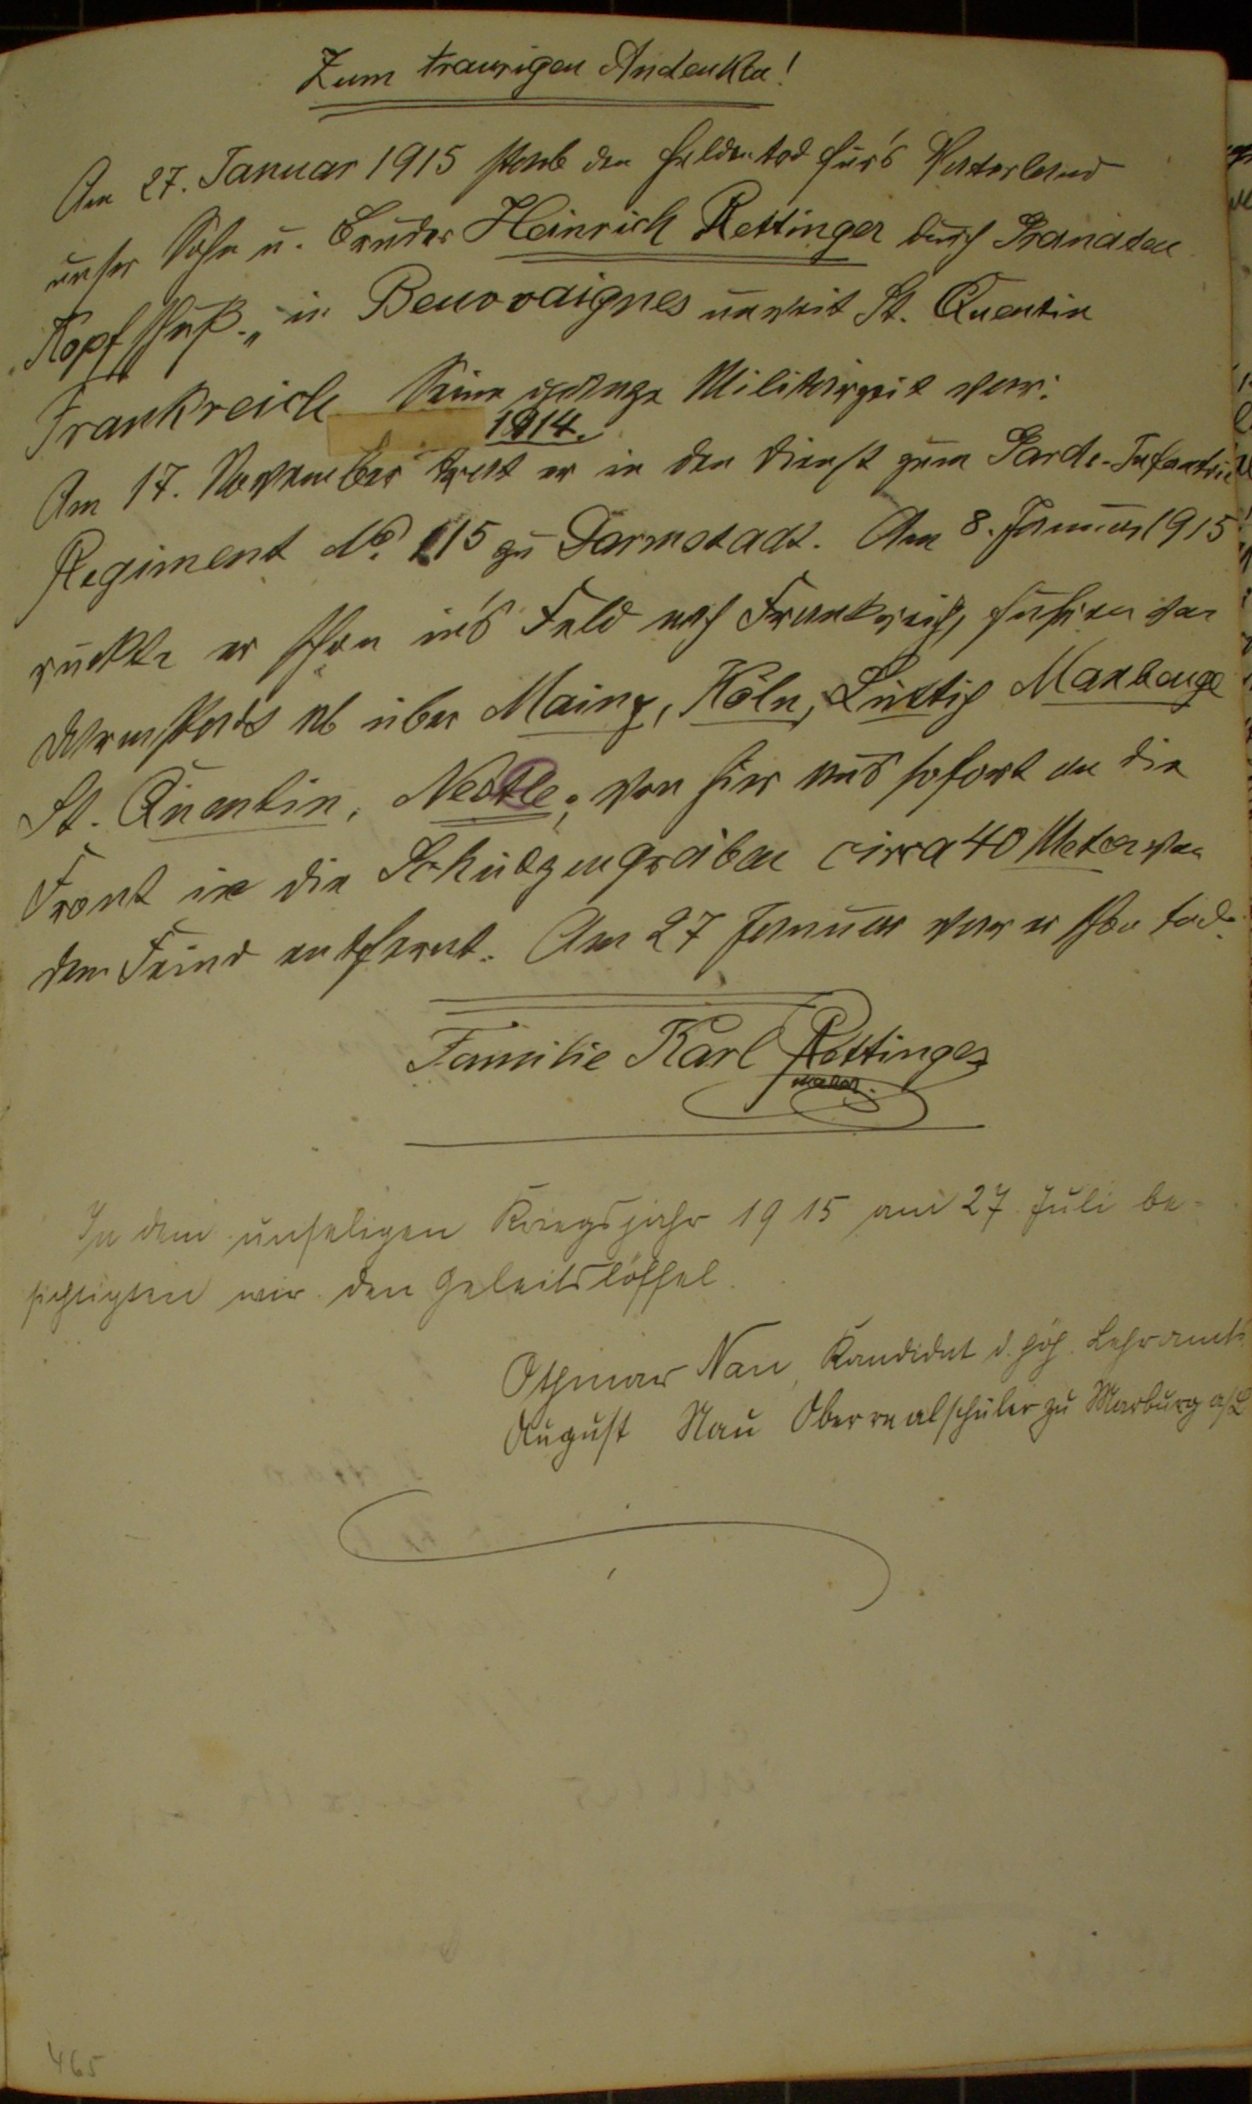 Zum traurigen Andenken!
Am 27. Januar 1915 starb den Heldentod für's Vaterland
unser Sohn u. Bruder Heinrich Rettinger durch Granaten
"Kopfschuß." in Beuvraignes unweit St. Quentin
Frankreich Seine ganze Militärzeit war:
1914.
Am 17. November trat er in den Dienst zum Garde-Infantrie
Regiment No. 115 zu Darmstadt. Am 8. Januar 1915
rückte er schon in's Feld nach Frankreich, fuhren von
Darmstadt ab über Mainz, Köln, Lüttig Maxbauge
St. Quentin, Nestle; von hier aus sofort an die
Front in die Schützengräben circa 40 Meter von
dem Feind entfernt. Am 27 Januar war er schon tod.
Familie Karl Rettinger
Maler.
In dem unseligen Kriegsjahr 1915 am 27 Juli be-
sichtigten wir den Geleitslöffel.
Othmar Nau, Kandidat d. höh. Lehramts
August Nau Oberrealschüler zu Marburg a/L
465